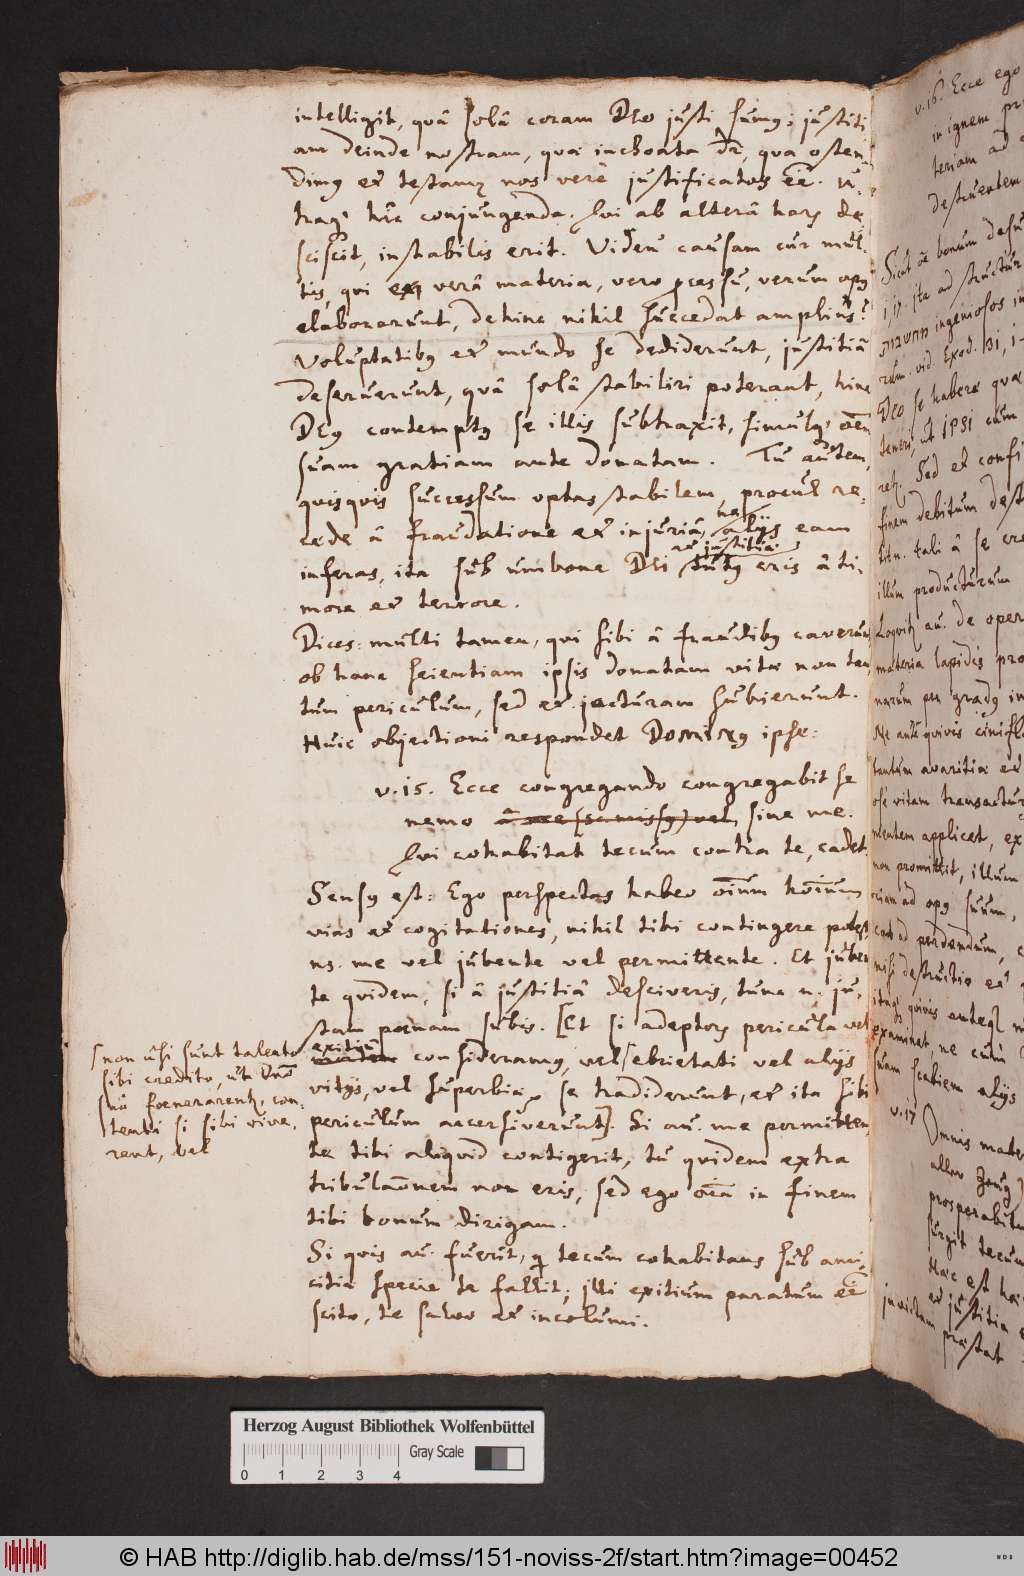 intelligit, quâ solâ coram DEo justi sumꝰ; justiti
am deinde nostram, quæ inchoata dr̄, qua osten-
dimꝰ et testamur nos verè justificatos eē. u-
traqꝫ hîc conjungenda. Qui ab alterâ harꝫ de-
sciscit, instabilis erit. Viden' causam cur mul-
tis, qui ex verâ materia, vero processu, verum opꝰ
elaborarunt, dehinc nihil succedat ampliùs?
Voluptatibꝰ et mundo se dediderunt, justitiâ
deseruerunt, quâ solâ stabiliri poterant, hinc
DEꝰ contemptꝰ se illis subtraxit, simulqꝫ oēm
suam gratiam ante donatam. Tu autem,
quisquis successum optas stabilem, procul re-
cede â fraudatione et injuriâ, ne
alijs eam
inferas, ita sub umbone DEi et justitiæ
tutꝰ eris â ti-
more et terrore.
Dices: multi tamen, qui sibi â fraudibꝰ caverunt
ob hanc scientiam ipsis donatam vitæ non tan
tum periculum, sed et jacturam subierunt.
Huic objectioni respondet DOMINꝰ ipse:
v. 15. Ecce congregando congregabit se
nemo sine me.
Qui cohabitat tecum contra te, cadet.
Sensꝰ est: Ego perspectas habeo oīum hoīum
vias et cogitationes, nihil tibi contingere potest,
ns. me vel jubente vel permittente. Et juben
te quidem, si â justitiâ desciveris, tunc n. ju-
stam pœnam subis. [Et si adeptorꝫ pericula vel
exitiū
consideramꝰ, vel ebrietati vel alijs
vitijs, vel superbiæ se tradiderunt, et ita sibi
periculum accersiverunt]. Si au. me permitten-
te tibi aliquid contigerit, tu quidem extra
tribulaōnem non eris, sed ego oīa in finem
tibi bonum dirigam.
Si quis au. fuerit, q tecum cohabitans sub ami-
citiæ specie te fallit; illi exitium paratum eē
scito, te salvo et incolumi.
non usi sunt talento
sibi credito, ut Dn̄o
suo fœnerarent, con-
tenti si sibi vive-
rent, vel
v. 16. Ecce ego
in ignem
teriam ad
destruentem
Sicut oē bonum
ita ad structur
ingeniosos in
rum. vid. Exod. 31, 1-
DEO se habere quæ
teneri, ut IPSI cum
Sed et confi
finem debitum dest
tali â se
illum producturum
Loquitur au. de oper
materia lapidis pro
narum per gradꝰ in
Ne autē quivis ciniflo
tantùm avaritiæ et
vitam transactur
mentem applicet, ex
non promittit, illum
riam ad opꝰ suum,
ad perdendum,
nisi destructio et
itaqꝫ quivis anteqꝫ
examinet, ne cum
suam scabiem alijs
v. 17
Omnis mater
prosperabitur
surgit tecum
Hæc est hæ
et justitia
invictum præstat
Herzog August Bibliothek Wolfenbüttel
Gray Scale
0 1 2 3 4
© HAB http://diglib.hab.de/mss/151-noviss-2f/start.htm?image=00452